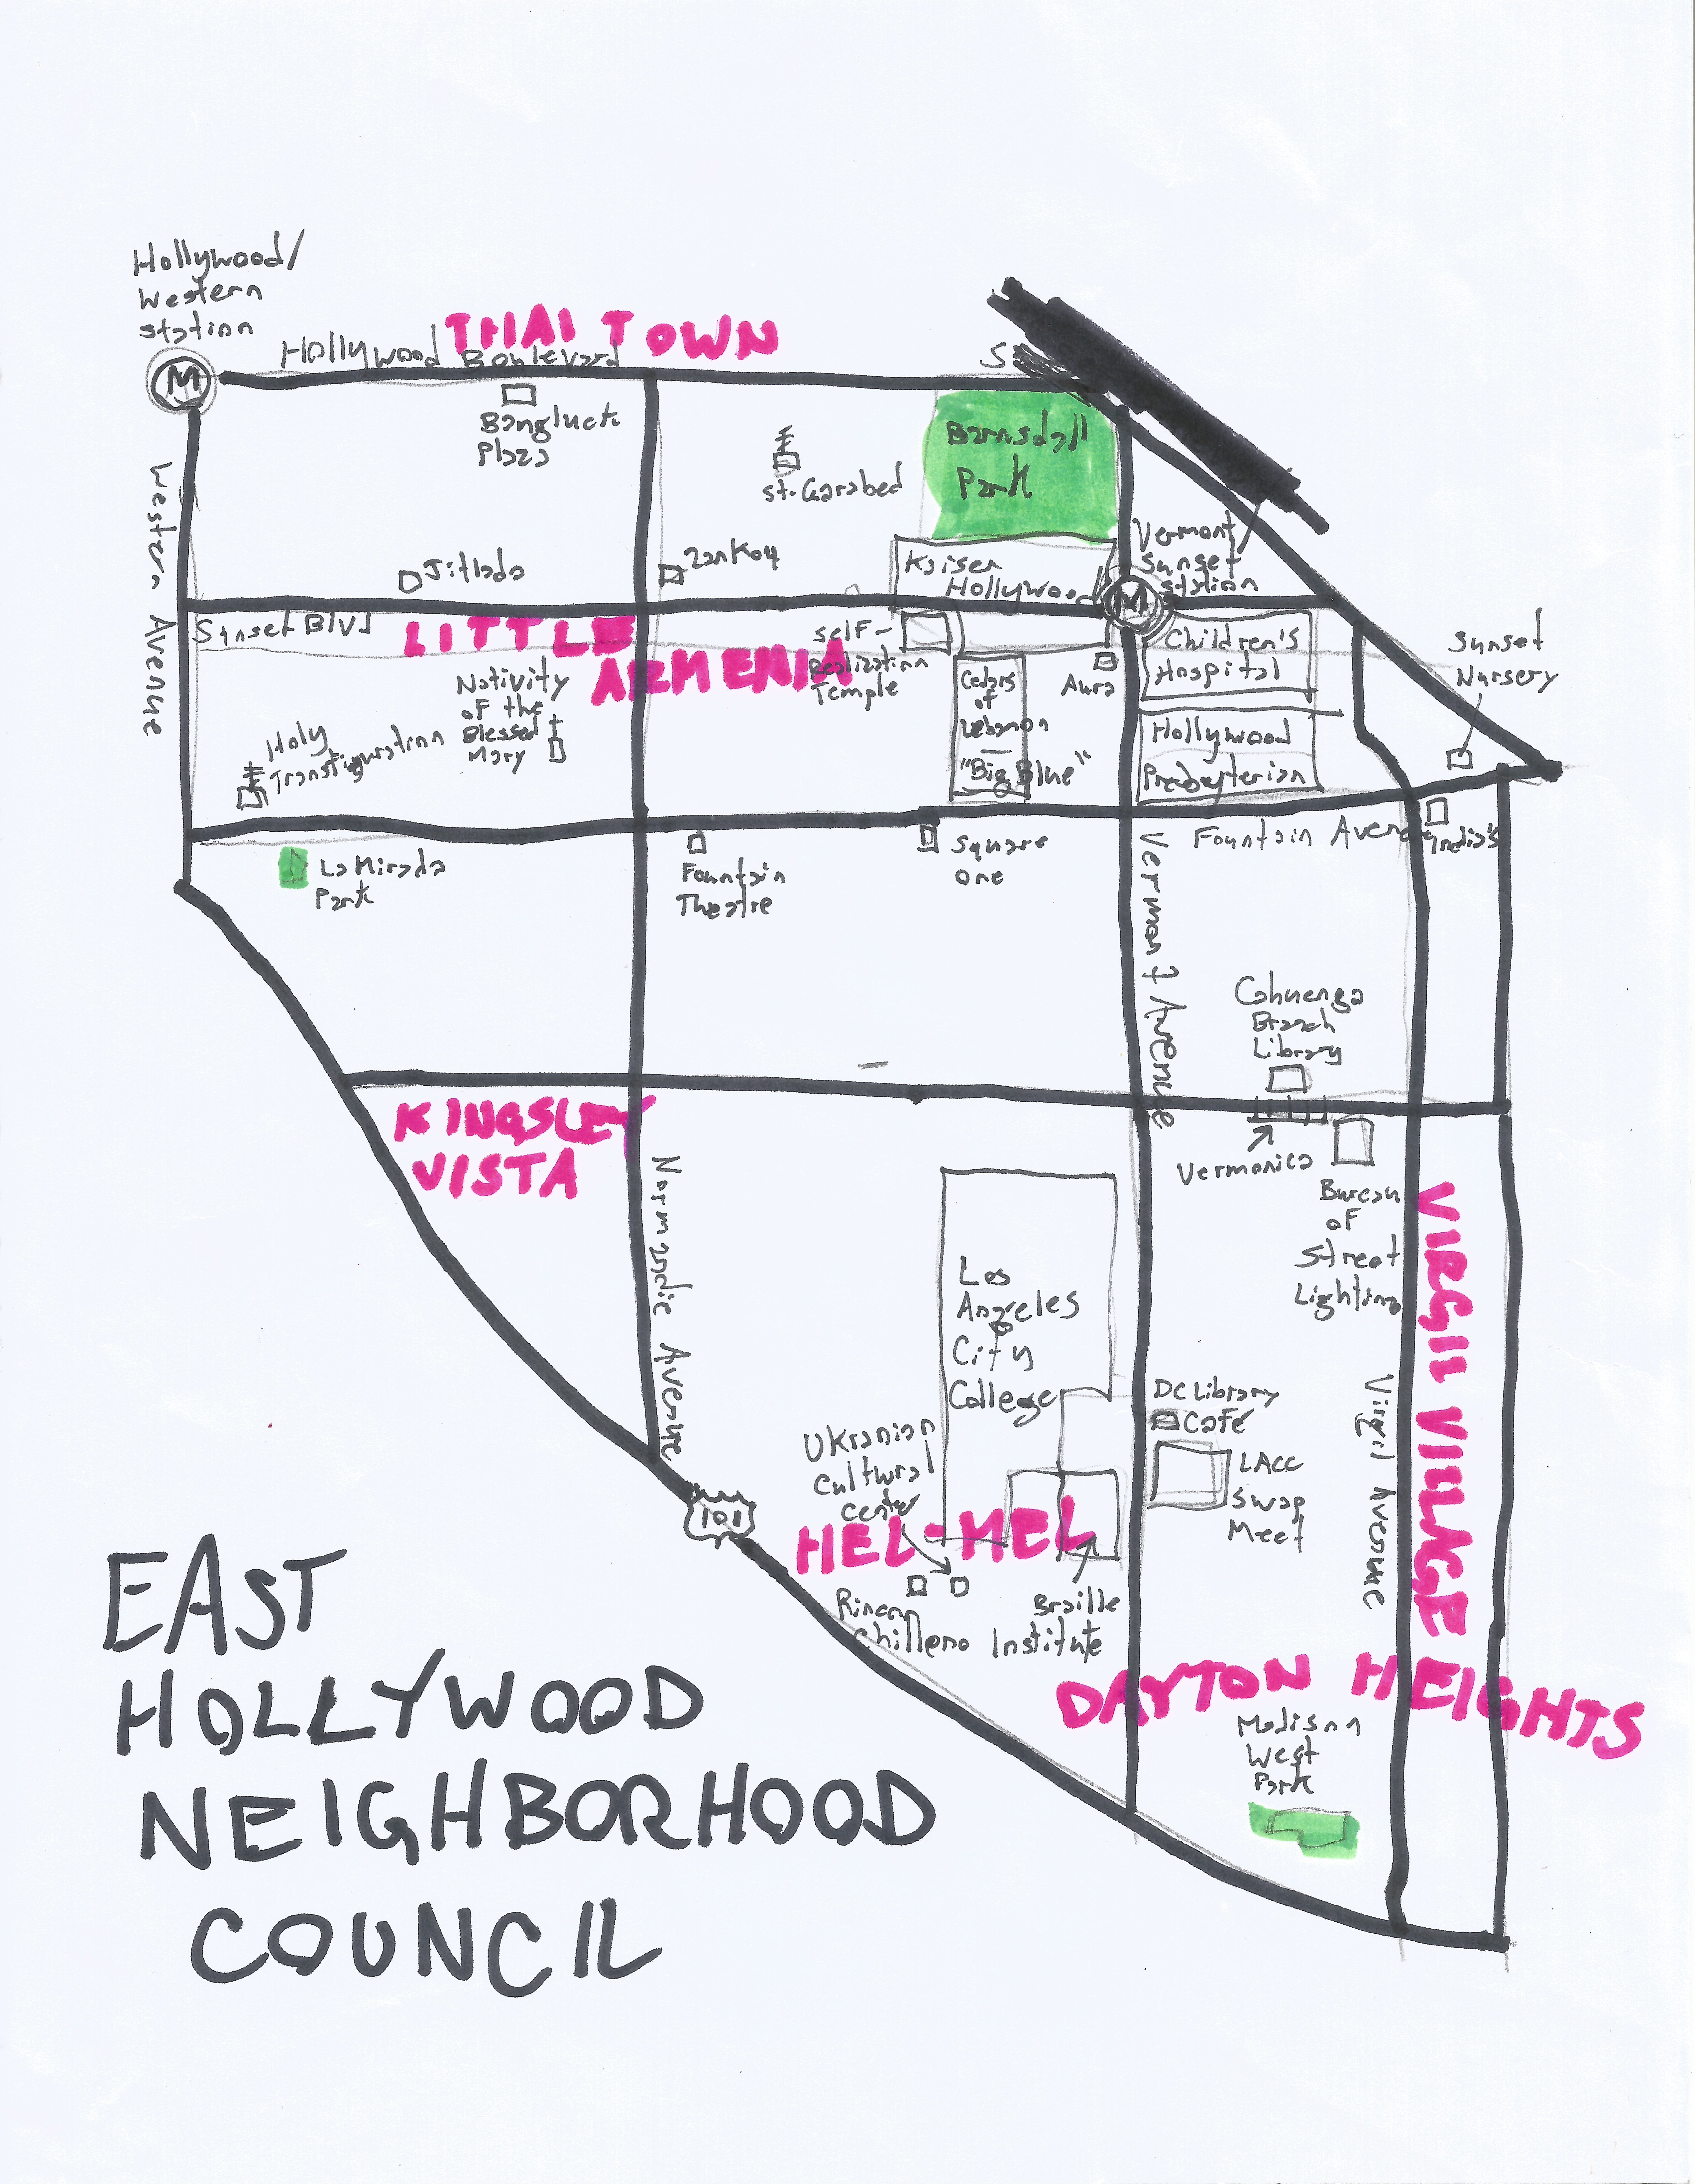 Hollywood/
Western
Station
THAI TOWN
Hollywood Boulevard
S
M
Bangluck
Plaza
Barnsdall
Park
St. Garabed
Western Avenue
Vermont/
Sunset
Station
Jitlada
Zankou
Kaiser
Hollywood
M
Sunset Blvd
LITTLE
ARMENIA
Self-
Realization
Temple
Children's
Hospital
Sunset
Nursery
Nativity
of the
Blessed
Mary
Cedars
of
Lebanon
"Big Blue"
Aura
Holy
Transfiguration
Hollywood
Presbyterian
Fountain Avenue
India's
La Mirada
Park
Fountain
Theatre
Square
One
Vermont Avenue
Cahuenga
Branch
Library
KINGSLEY
VISTA
Vermonica
Bureau
of
Street
Lighting
Normandie Avenue
VIRGIL VILLAGE
Los
Angeles
City
College
DC Library
Café
Virgil Avenue
Ukranian
Cultural
Center
LACC
Swap
Meet
101
HEL-MEL
Rincon
Chilleno
Braille
Institute
DAYTON HEIGHTS
Madison
West
Park
EAST
HOLLYWOOD
NEIGHBORHOOD
COUNCIL